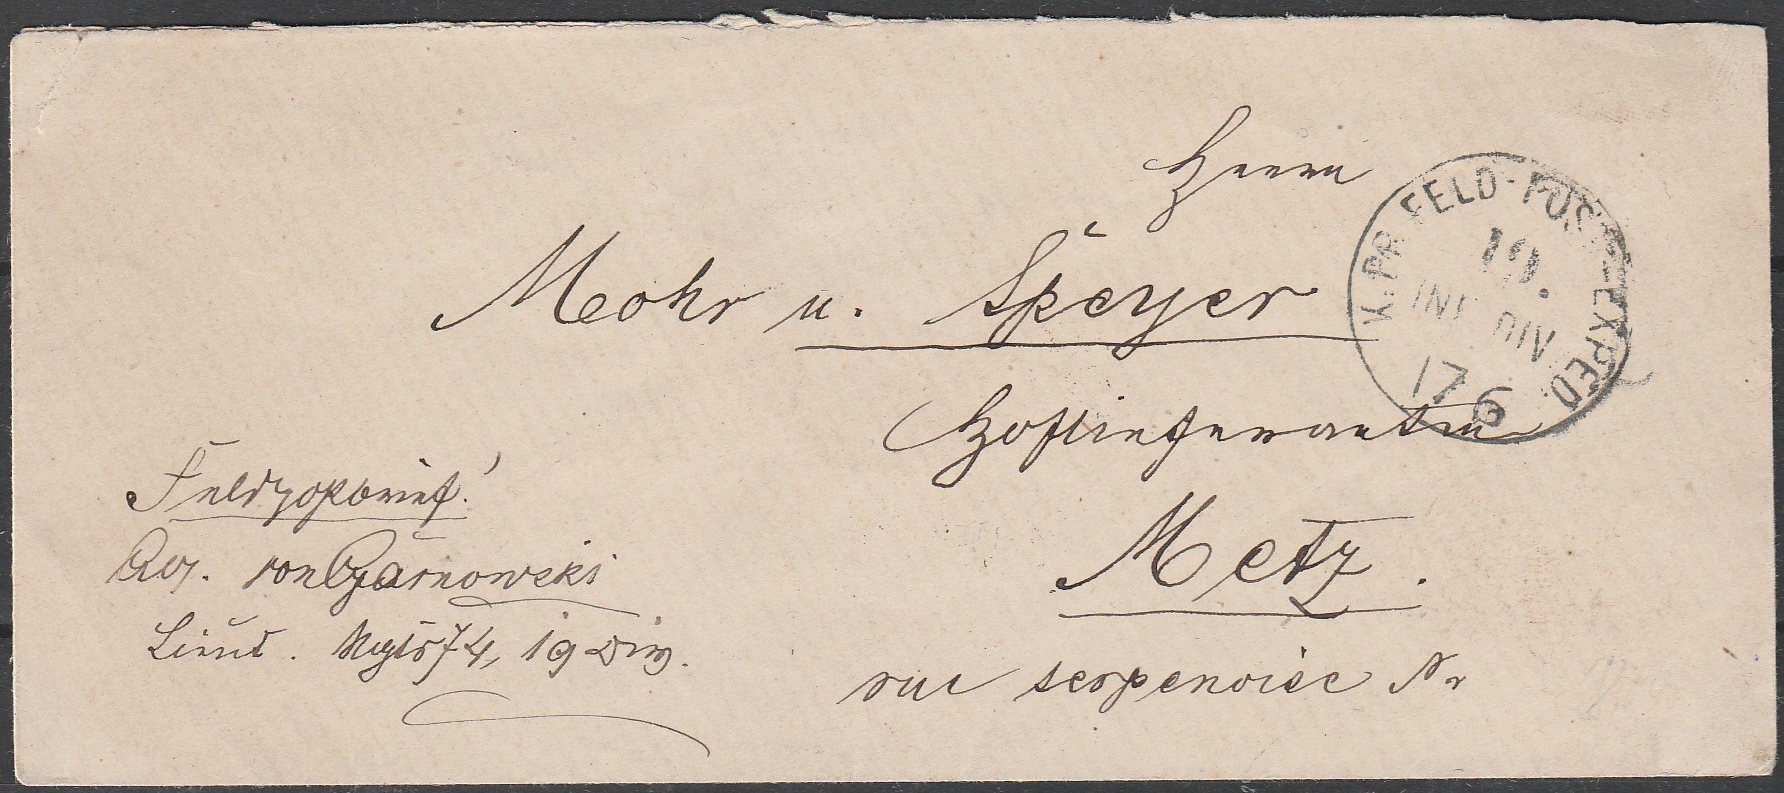 Herrn
Mohr u. Speyer
Hoflieferanten
Metz.
rue serpenoise Nr
Feldpostbrief!
von Czarnowski
Lieut. Regts 74, 19 Div.
K. PR. FELD-POST-EXPED.
19.
INF. DIV.
17 6